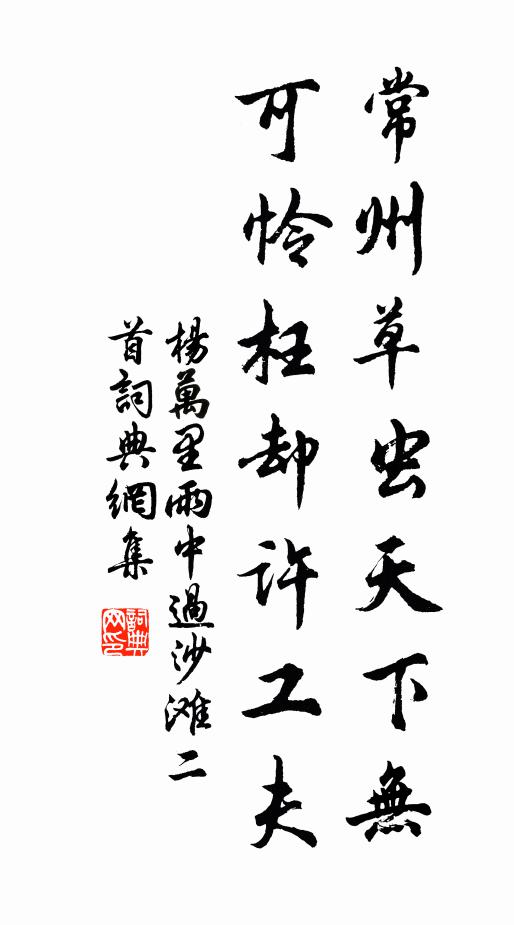 常州草虫天下無
可怜枉却許工夫
楊萬里雨中過沙滩二
首詞典網集
詞典
网印